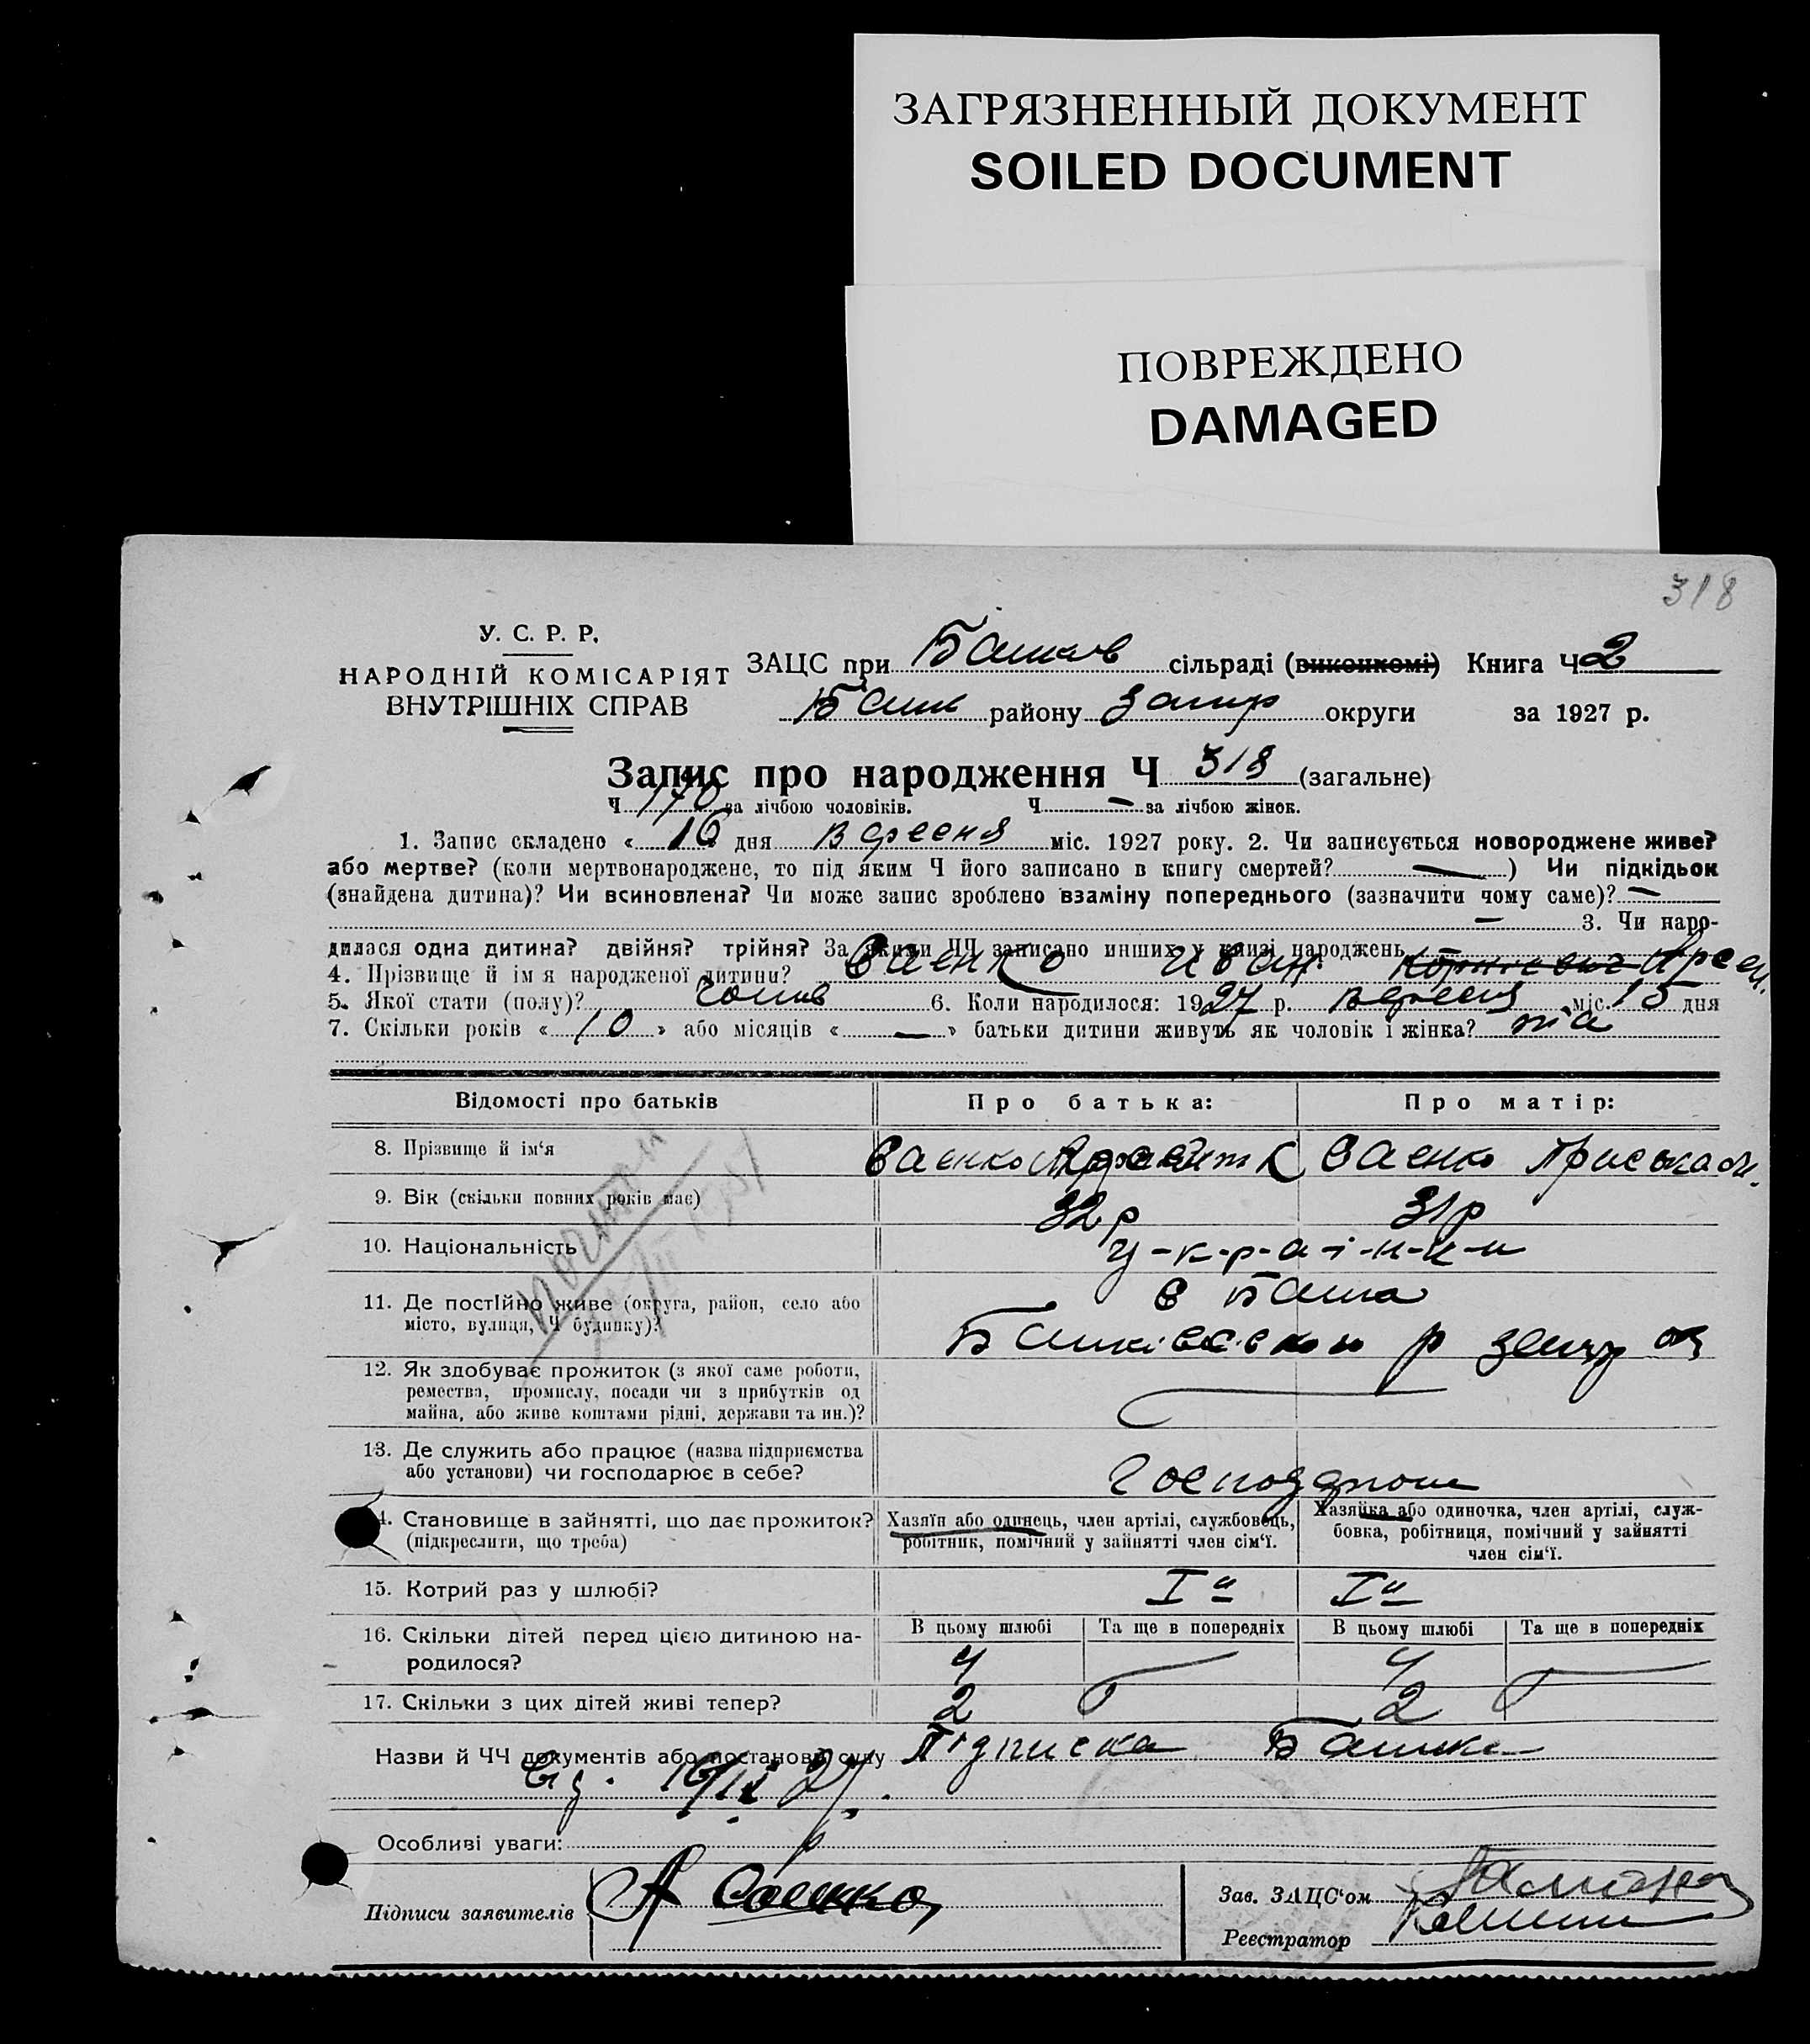 ЗАГРЯЗНЕННЫЙ ДОКУМЕНТ
SOILED DOCUMENT
ПОВРЕЖДЕНО
DAMAGED
318
У. С. Р. Р.
НАРОДНІЙ КОМІСАРІЯТ
ВНУТРІШНІХ СПРАВ
ЗАЦС при Башков сільраді (виконкомі) Книга Ч 2
Баш району Запор округи за 1927 р.
Запис про народження Ч 318 (загальне)
Ч 170 за лічбою чоловіків. Ч — за лічбою жінок.
1. Запис складено « 16 дня Вересня міс. 1927 року. 2. Чи записується новороджене живе?
або мертве? (коли мертвонароджене, то під яким Ч його записано в книгу смертей? —) Чи підкідьок
(знайдена дитина)? Чи всиновлена? Чи може запис зроблено взаміну попереднього (зазначити чому саме)? —
— 3. Чи наро-
дилася одна дитина? двійня? трійня? За якими ЧЧ записано инших у книзі народжень
4. Прізвище й ім'я народженої дитини? Саенко Иван Арсен.
5. Якої стати (полу)? чолов 6. Коли народилося: 1927 р. Вересня міс. 15 дня
7. Скільки років « 10 » або місяців « — » батьки дитини живуть як чоловік і жінка?
Відомості про батьків
Про батька:
Про матір:
8. Прізвище й ім‘я
Саенко
Саенко Приська
9. Вік (скільки повних років має)
32 р
31 р
10. Національність
У-к-р-а-ї-н-ц-и
11. Де постійно живе (округа, район, село або
місто, вулиця, Ч будинку)?
с Башка
р Запор ок
12. Як здобуває прожиток (з якої саме роботи,
ремества, промислу, посади чи з прибутків од
майна, або живе коштами рідні, держави та ин.)?
13. Де служить або працює (назва підприємства
або установи) чи господарює в себе?
14. Становище в зайнятті, що дає прожиток?
(підкреслити, що треба)
Хазяїн або одинець, член артілі, службовець,
робітник, помічний у зайнятті член сім‘ї.
Хазяйка або одиночка, член артілі, служ-
бовка, робітниця, помічний у зайнятті
член сім‘ї.
15. Котрий раз у шлюбі?
I й
I й
16. Скільки дітей перед цією дитиною на-
родилося?
В цьому шлюбі
Та ще в попередніх
В цьому шлюбі
Та ще в попередніх
4
4
17. Скільки з цих дітей живі тепер?
2
2
Назви й ЧЧ документів або постанови суду Підписка
від 16/IX 27 р
Особливі уваги:
Підписи заявителів
А Саенко
Зав. ЗАЦС‘ом
Реєстратор